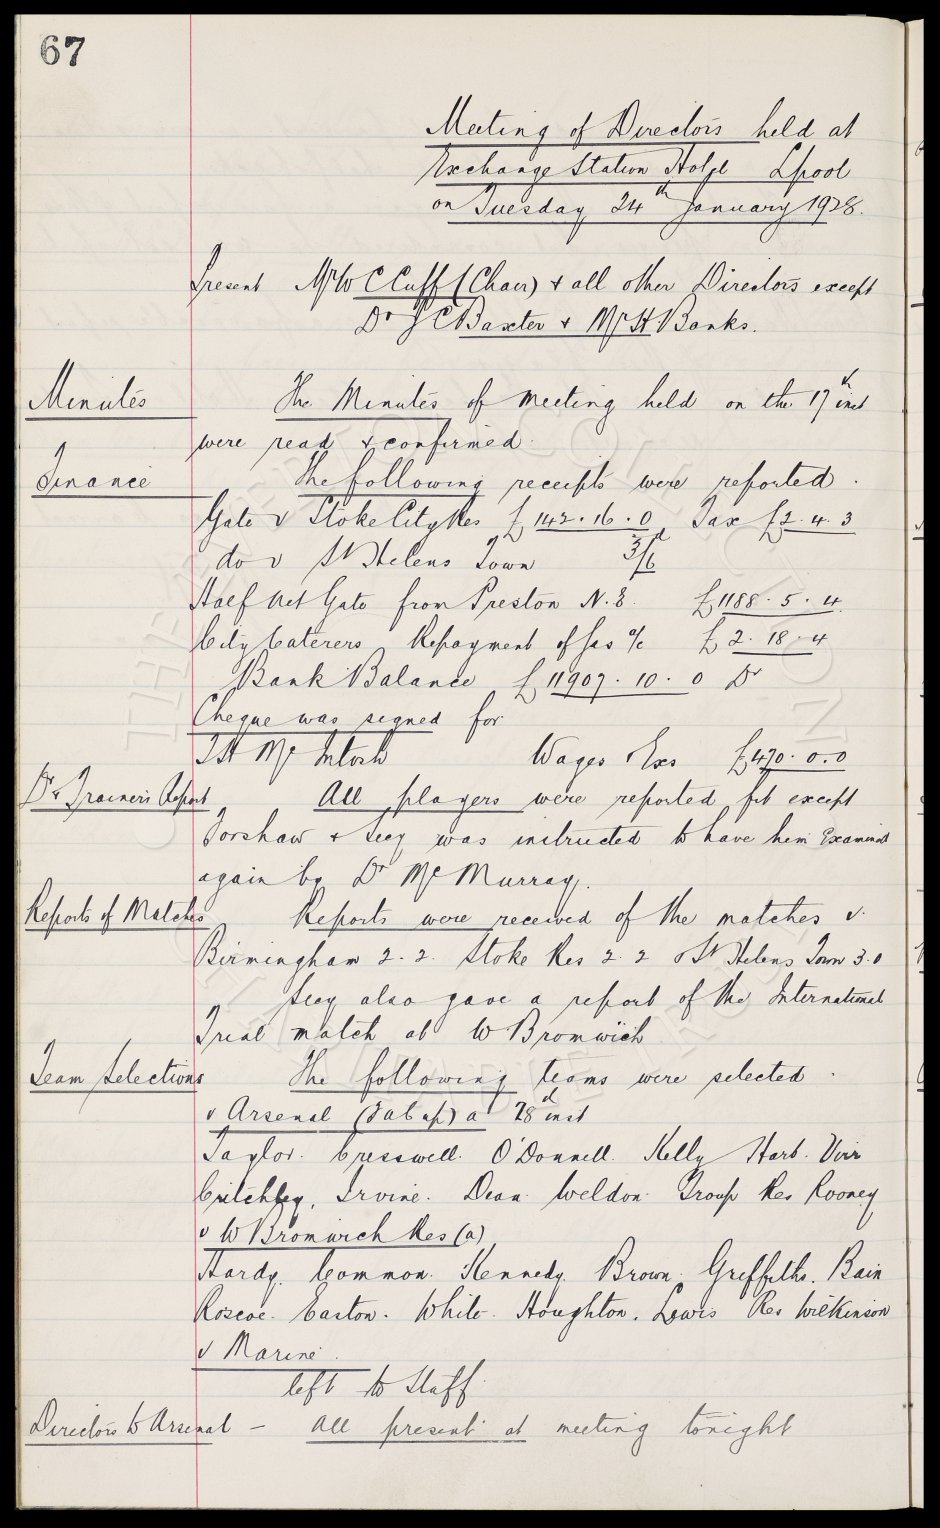 67
Meeting of Directors held at
Exchange Station Hotel Lpool
on Tuesday 24th January 1928.
Present Mr W C Cuff (Chair) & all other Directors except
Dr J C Baxter & Mr H Banks.
Minutes The Minutes of meeting held on the 17th inst
were read & confirmed.
Finance The following receipts were reported.
Gate v Stoke City Res £142.16.0 Tax £2.4.3
do v St Helens Town 3/6d
Half Net Gate from Preston N.E. £1188.5.4
City Caterers Repayment of Gas a/c £2.18.4
Bank Balance £11907.10.0 Dr
Cheque was signed for
T H McIntosh Wages & Exs £470.0.0
Dr & Trainer's Report All players were reported fit except
Forshaw & Secy was instructed to have him Examined
again by Dr McMurray.
Reports of Matches Reports were received of the matches v.
Birmingham 2.2. Stoke Res 2.2 & St Helens Town 3.0
Secy also gave a report of the International
Trial match at W Bromwich
Team Selections The following teams were selected.
v Arsenal (Cup) a 28th inst
Taylor. Cresswell. O'Donnell. Kelly Hart. Virr
Critchley. Irvine. Dean. Weldon. Troup Res Rooney
v W Bromwich Res (a)
Hardy. Common. Kennedy. Brown. Griffiths. Bain
Roscoe. Easton. White. Houghton. Lewis Res Wilkinson
v Marine.
left to Staff.
Directors to Arsenal — All present at meeting tonight